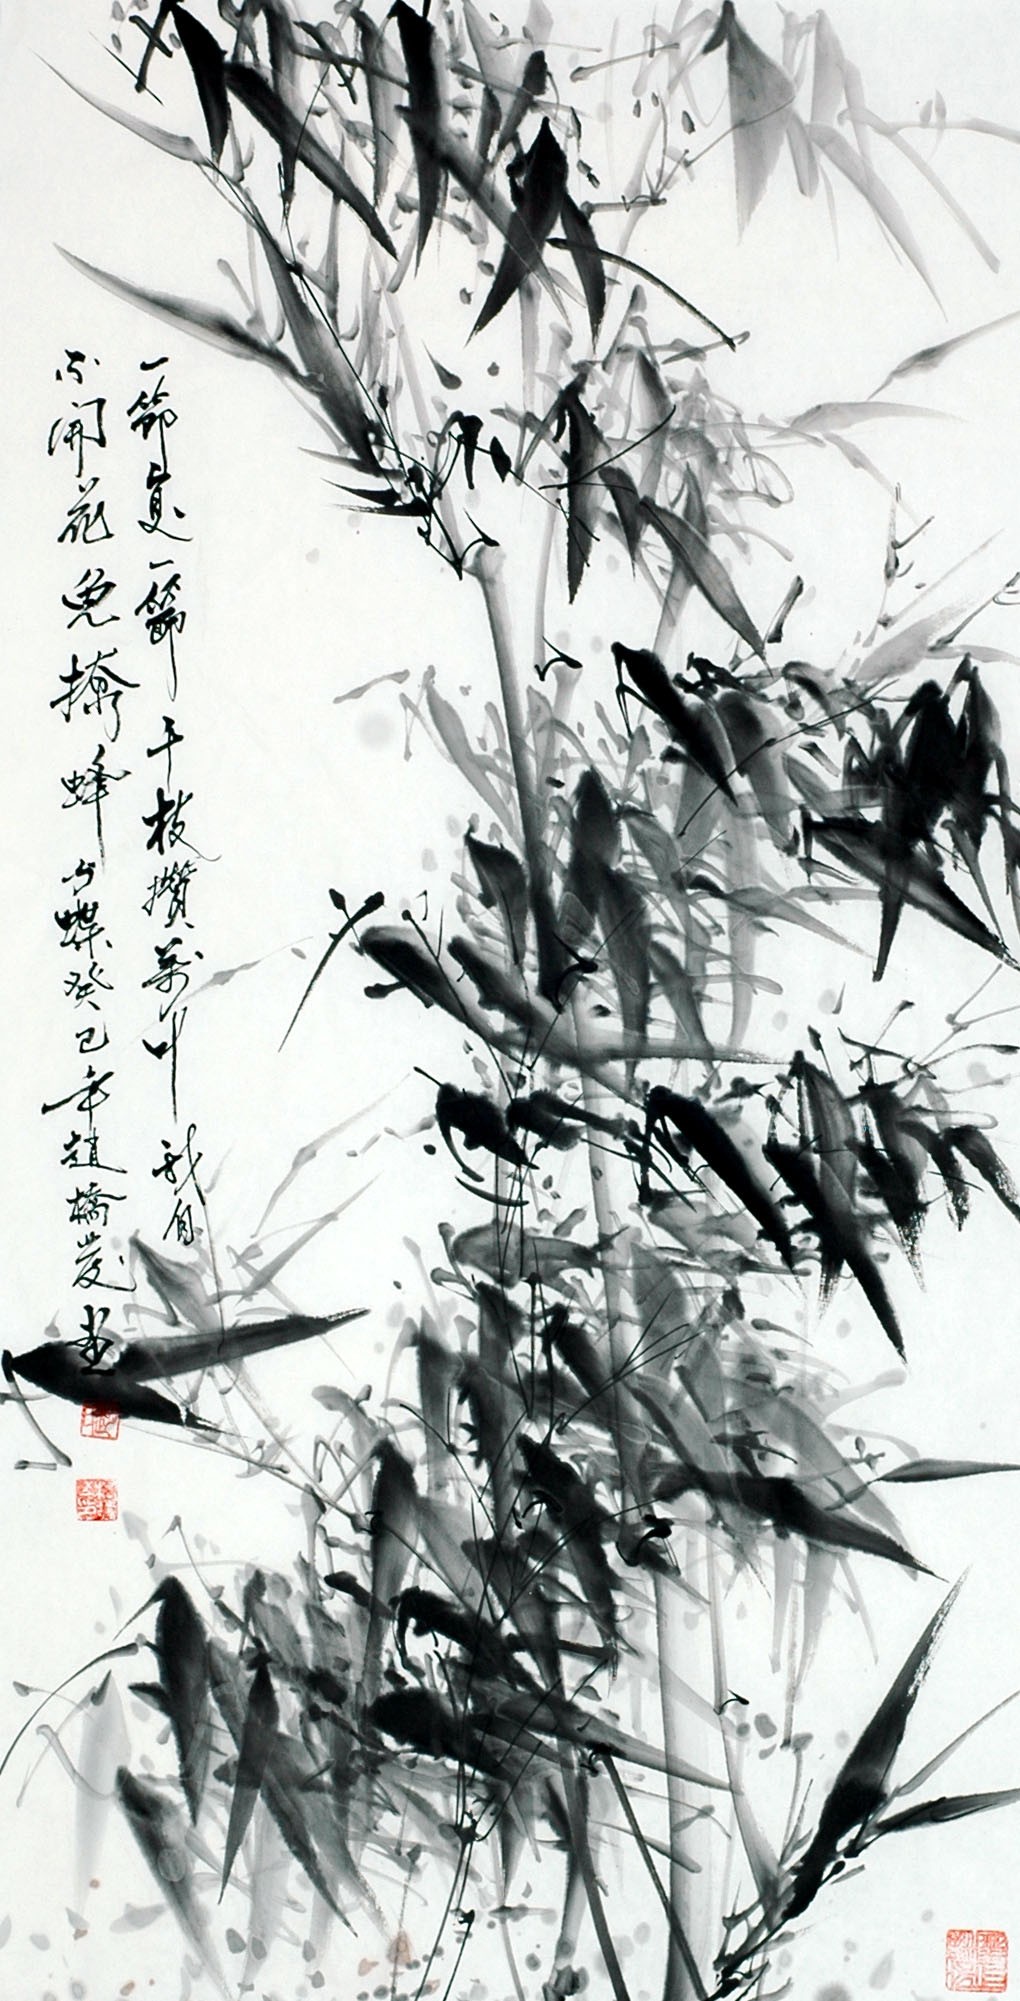 一節复一節千枝攢萬叶我自
不開花免撩蜂与蝶癸巳年趙橋發画